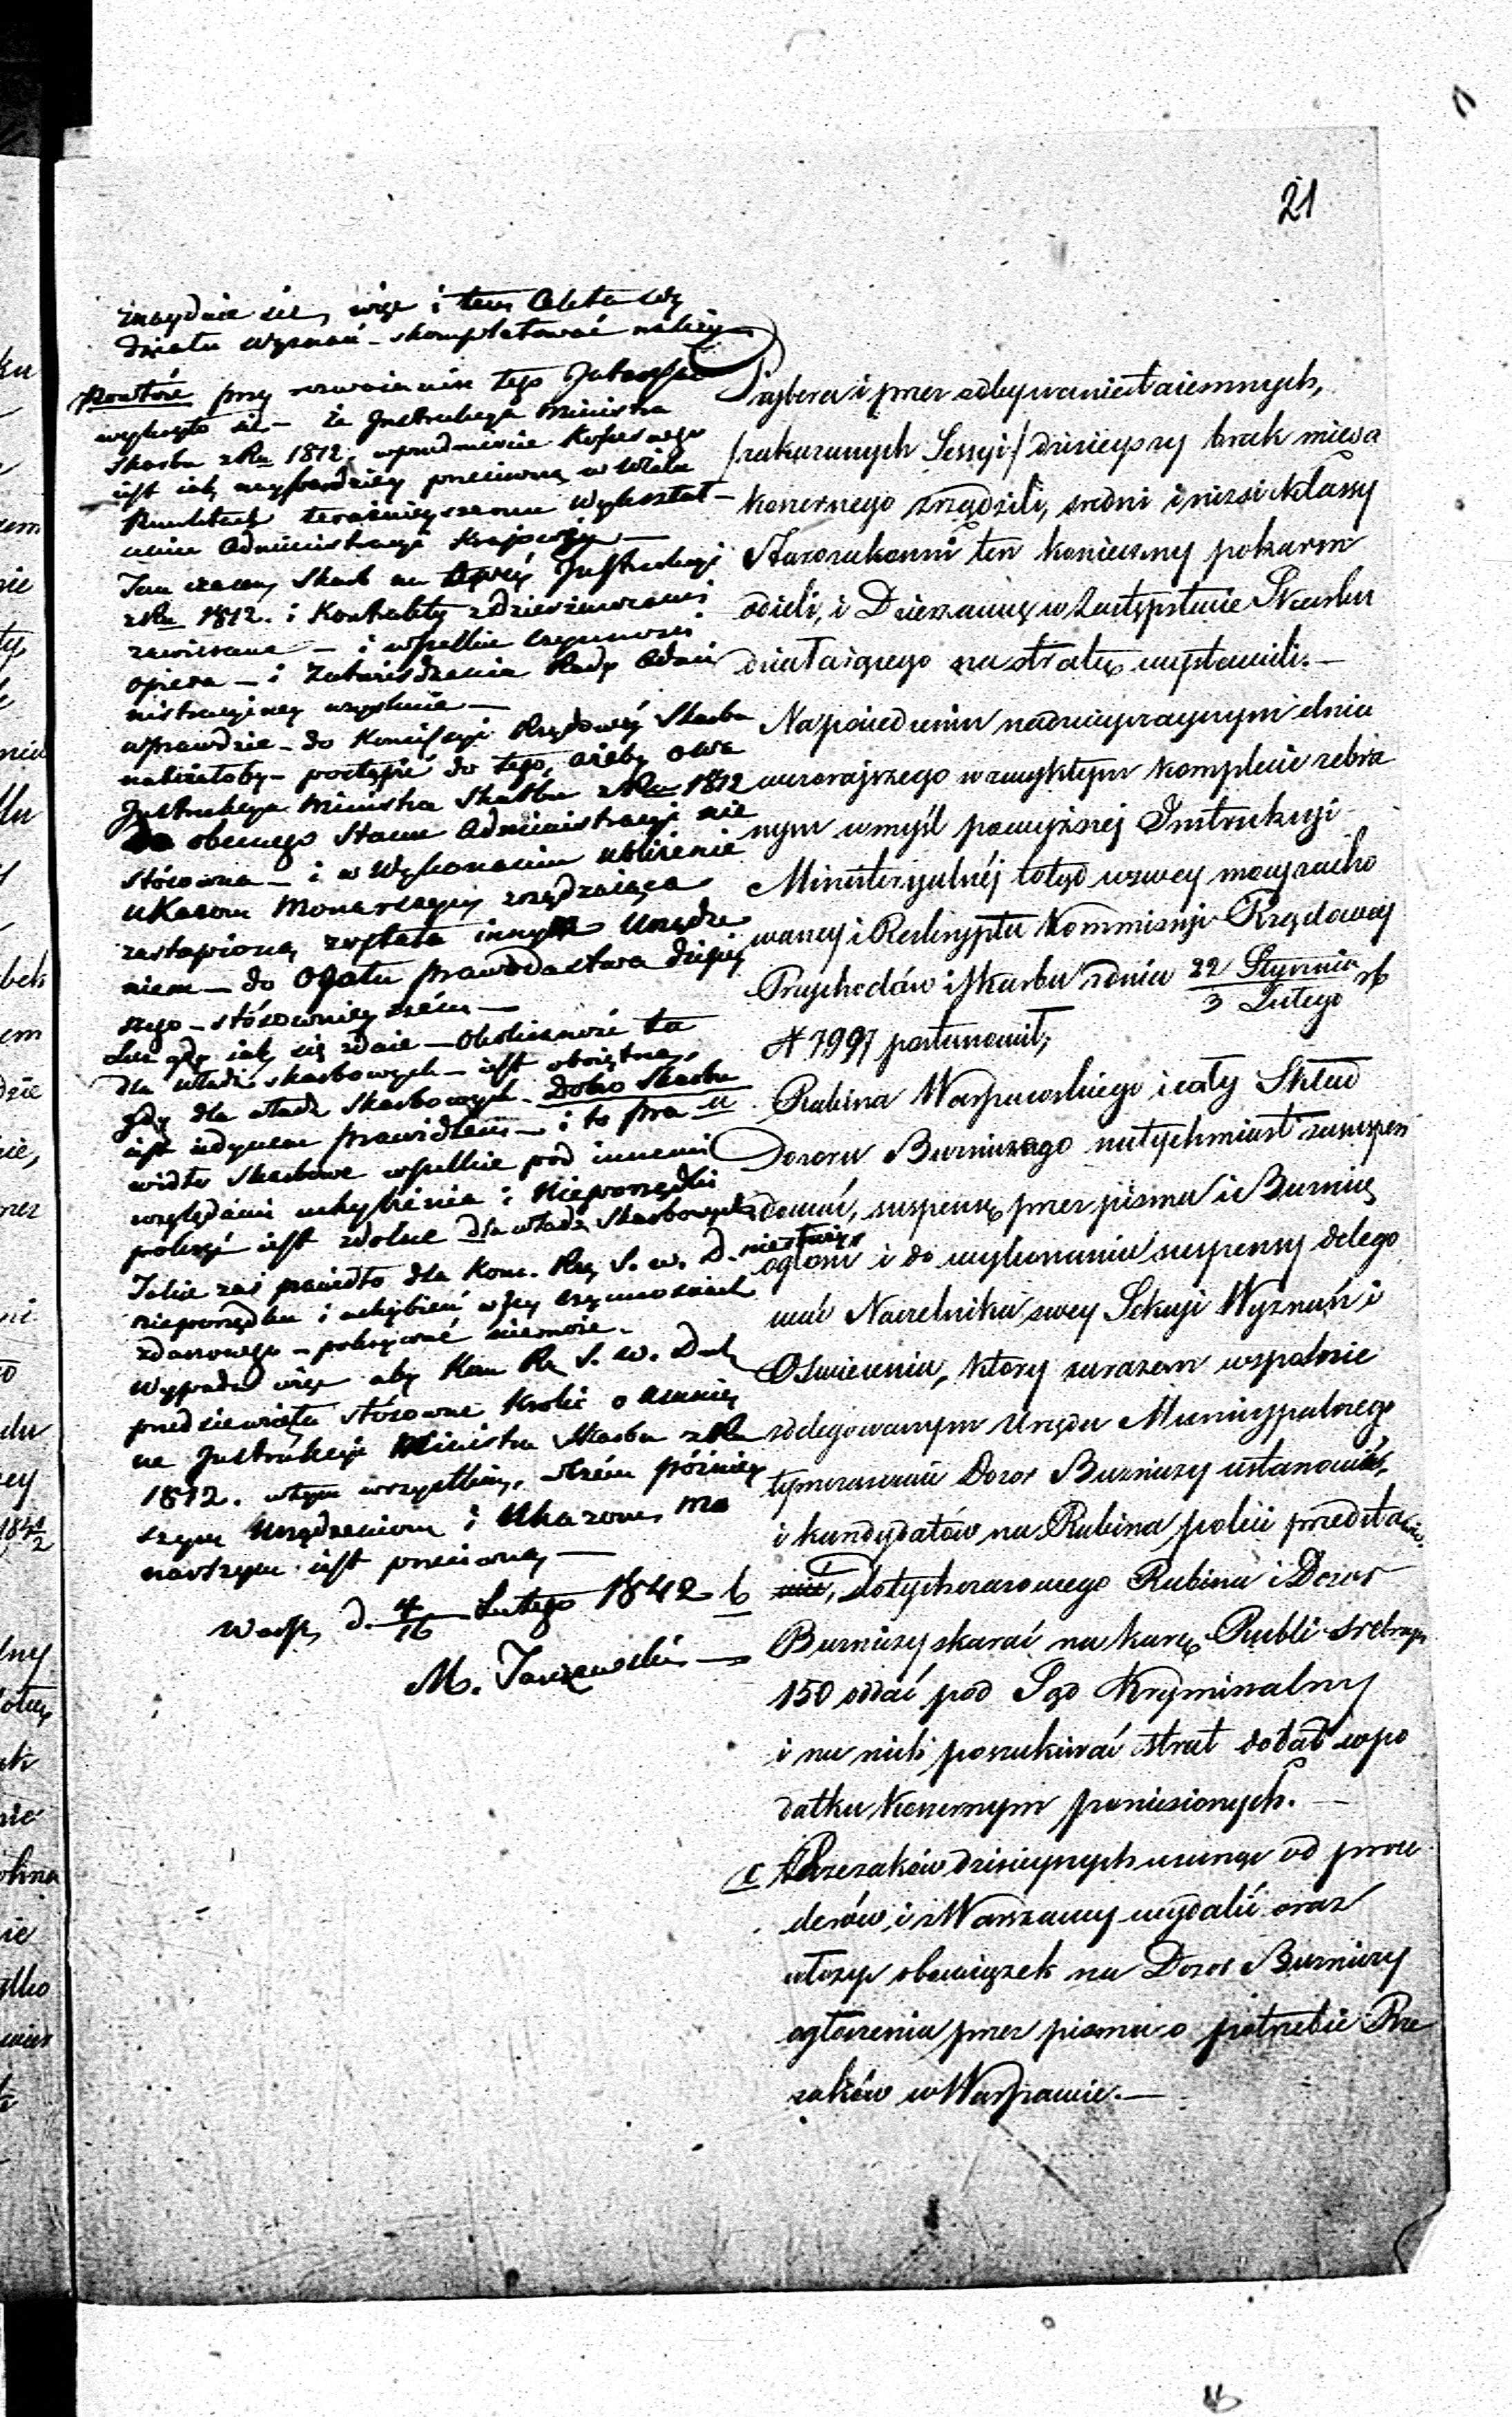 21
znayduie się, więc i tem Akta Wy
działu wyznań – skompletować należy
Powtóre przy rozważaniu tego Interessu
wykryło się – że Instrukcya Ministra
Skarbu z Ru 1812. w przedmiocie Kosznego
iest iak najbardziey przeciwną w wielu
Punktach teraźnieyszemu Wykształ-
ceniu Administracyi Krajowéy –
Tym czasem Skarb na tęyże Instrukcyi
z Ru 1812. i Kontrakty z Dzierżawcami
zawierane – i wszelkie czynności
opiera – i Zatwierdzenia Rady Admi
nistracyiney uzyskuie –
wprawdzie – do Kommissyi Rządowéy Skarbu
należałoby – postąpić do tego, ażeby owa
Instrukcya Ministra Skarbu z Ru 1812
do obecnego Stanu Administracyi nie
stósowna – i w Wykonaniu ubliżenie
Ukazom Monarszym zrządzaiąca
zastąpioną została innym Urządze
niem – do Ogółu prawodawstwa dzisiey
szego – stósownieyszém –
Lecz gdy iak się zdaie – Okoliczność ta
dla władz skarbowych – iest obojętną,
gdy dla władz Skarbowych Dobro Skarbu
iest iedynem prawidłem – i to pra
widło Skarbowe wszelkie pod innemi
względami uchybienia i Nieporządki
pokryć iest zdolne dla władz Skarbowych
Takie zaś prawidło dla Kom. Rzą S. w. D.
nieporządku i uchybień w Jey czynnościach
zdarzonego – pokrywać niemoże.
Wypada więc aby Kom Rz S. w. D. i
przedsiewzięła stósowne Kroki o zmianę
Instrukcyi Ministra Skarbu z Ru
1812. w tym wszystkiem, w czém późniey
szym Urządzeniom i Ukazom Mo
narszym iest przeciwną –
Warsz. d. 4/16 Lutego 1842 b
M. Tarczewski
i przez odbywanie taiemnych,
/zakazanych Sessyi/ dzisieyszy brak mięsa
koszernego zrządzili, sredni i nizsi klassy
Starozakonni ten konieczny pokarm
odieli, i Dzierzawcę w Zastępstwie Skarbu
działaiącego na stratę wystawili. –
Na posiedzeniu nadzwyczaynym dnia
wczorajszego w zwykłym komplecie zebra
nym w myśl powyższej Instrukcyi
Ministeryalnéj totąd w swey mocy zacho
waney i Reskryptu Kommissyi Rządowey
Przychodów i Skarbu z dnia 22 Stycznia / 3 Lutego rb
N 7997 postanowił,
Rabina Warszawskiego i cały Skład
Dozoru Bużniczego natychmiast zasuspen
dować, suspensę przez pisma i Bużnicę
ogłosić i do wykonania suspensy delego
wać Naczelnika swey Sekcyi Wyznań i
Oświecenia, który zarazem wspólnie
z delegowanym Urzędu Municypalnego,
tymczasowie Dozor Bużniczy ustanowić,
i kandydatów na Rabina poleci przedstawić.
Dotychczasowego Rabina i Dozor
Bużniczy skarać na karę Rubli srebrem
150 oddać pod Sąd Kryminalny
i na nich poszukiwać strat dotąd w po
datku koszernym poniesionych. –
c Rzezaków dzisieyszych usunąć od proce
derów, i z Warszawy wydalić oraz
włożyć obowiązek na Dozor Bużniczy
ogłoszenia przez pisma o potrzebie Rze
zaków w Warszawie. –